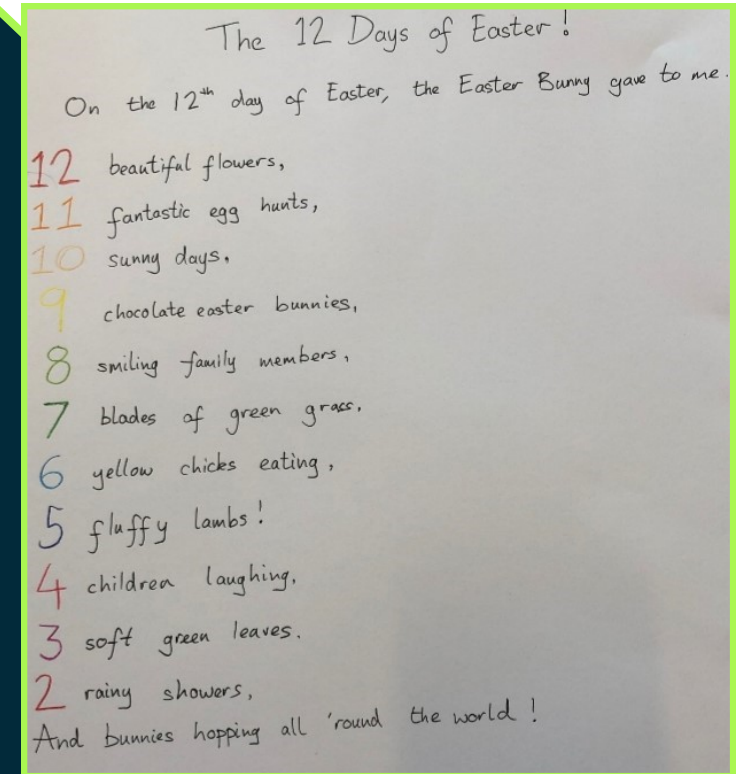 The 12 Days of Easter!
On the 12th day of Easter, the Easter Bunny gave to me.
12 beautiful flowers,
11 fantastic egg hunts,
10 sunny days.
9 chocolate easter bunnies,
8 smiling family members,
7 blades of green grass.
6 yellow chicks eating,
5 fluffy lambs!
4 children laughing.
3 soft green leaves.
2 rainy showers,
And bunnies hopping all 'round the world!